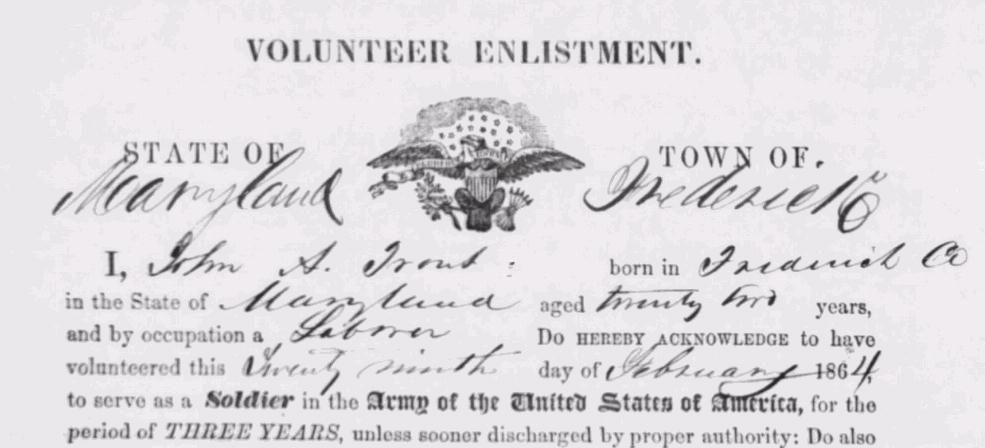 VOLUNTEER ENLISTMENT.
STATE OF TOWN OF.
Maryland Frederick
I, John A. Trout born in Frederick Co
in the State of Maryland aged twenty two years,
and by occupation a Laborer Do HEREBY ACKNOWLEDGE to have
volunteered this Twenty ninth day of February 1864,
to serve as a Soldier in the Army of the United States of America, for the
period of THREE YEARS, unless sooner discharged by proper authority: Do also